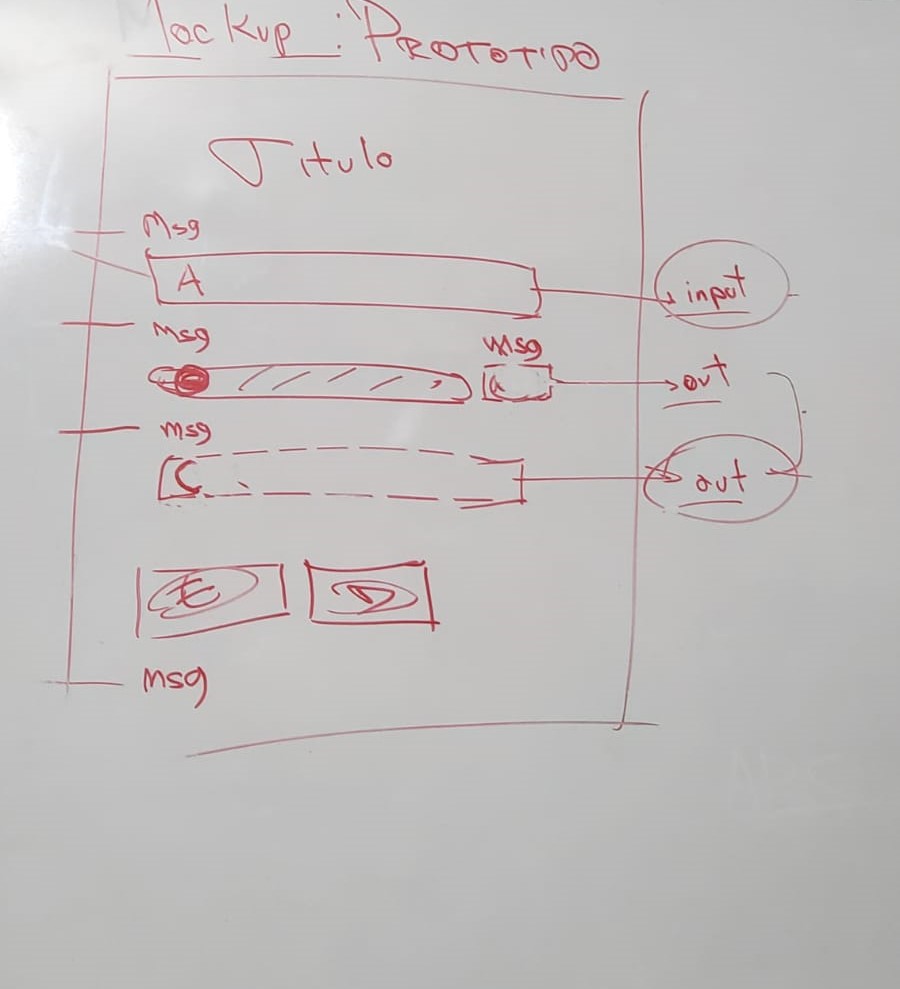 Mockup : PROTOTIPO
Titulo
Msg
A
input
Msg
msg
out
msg
C
out
E D
msg